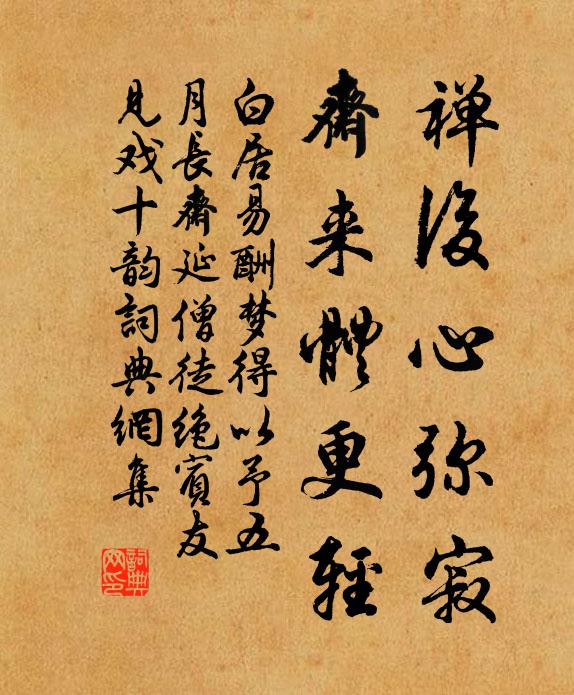 禅後心弥寂
齋来體更輕
白居易酬梦得以予五
月長齋延僧徒绝賓友
見戏十韵詞典網集
詞典
网印